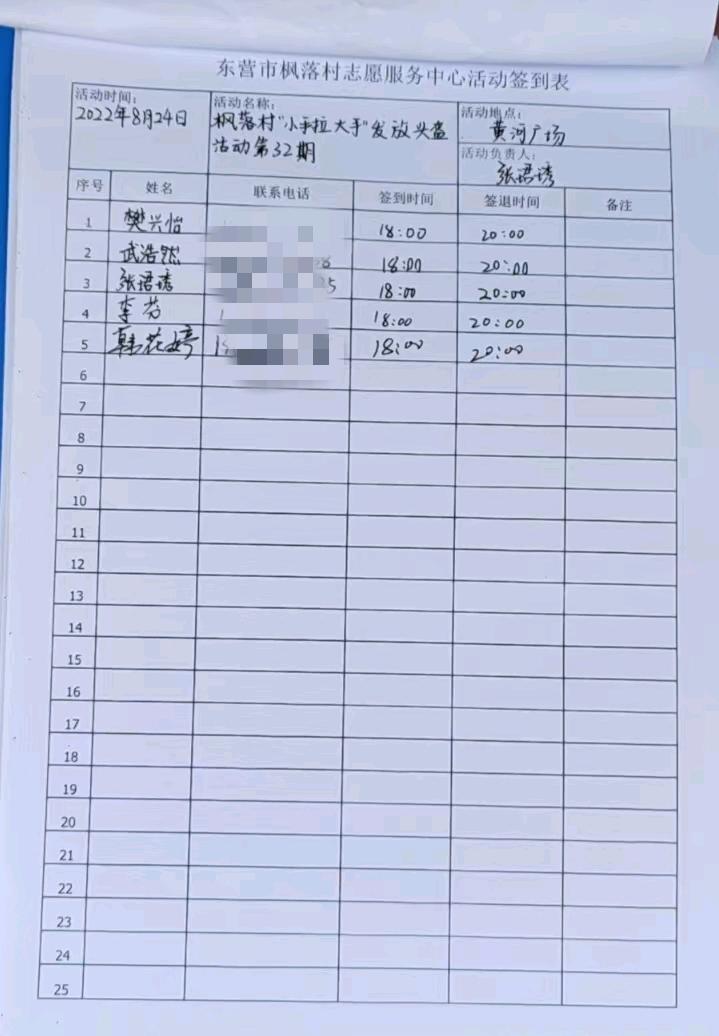 东营市枫落村志愿服务中心活动签到表
活动时间： 活动名称： 活动地点：
2022年8月24日 枫落村"小手拉大手"发放头盔 黄河广场
活动第32期 活动负责人：
张珺琇
序号 姓名 联系电话 签到时间 签退时间 备注
1 樊兴怡 18:00 20:00
2 武浩然 18:00 20:00
3 张珺琇 18:00 20:00
4 李芬 18:00 20:00
5 韩花婷 18:00 20:00
6
7
8
9
10
11
12
13
14
15
16
17
18
19
20
21
22
23
24
25